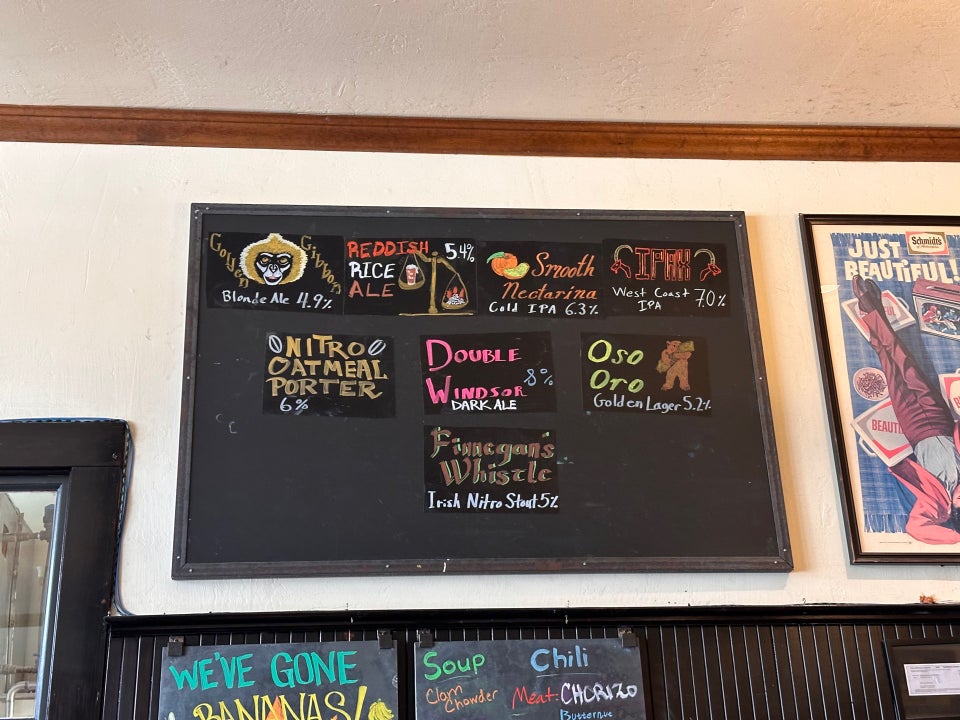 Golden Gibbon
Blonde Ale 4.9%
REDDISH 5.4%
RICE
ALE
Smooth
Nectarina
Cold IPA 6.3%
IPAX
West Coast 7.0%
IPA
NITRO
OATMEAL
PORTER
6%
DOUBLE
WINDSOR 8%
DARK ALE
Oso
Oro
Golden Lager 5.2%
Finnegan's
Whistle
Irish Nitro Stout 5%
Schmidt's
JUST
BEAUTIFUL!
BEAUTI
WE'VE GONE
BANANAS!
Soup Chili
Clam Meat: CHORIZO
Chowder
Butternut